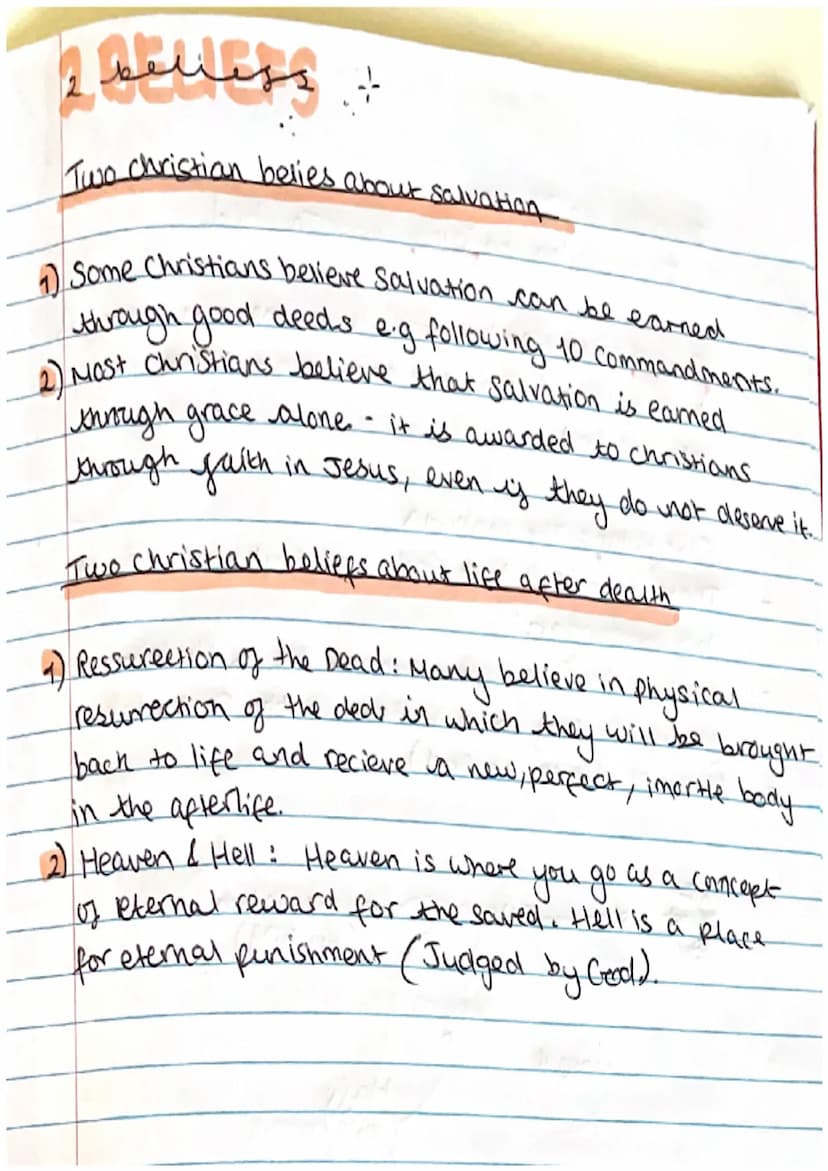 2 BELIEFS
2 beliefs
Two christian belies about salvation
1) Some Christians believe Salvation can be earned
through good deeds e.g following 10 commandments.
2) Most Christians believe that salvation is earned
through grace alone - it is awarded to christians
through faith in Jesus, even if they do not deserve it.
Two christian beliefs about life after death
1) Ressurection of the Dead: Many believe in physical
resurrection of the dead in which they will be brought
back to life and recieve a new, perfect, imortle body
in the afterlife.
2) Heaven & Hell: Heaven is where you go as a concept
of eternal reward for the saved. Hell is a place
for eternal punishment (Judged by God).